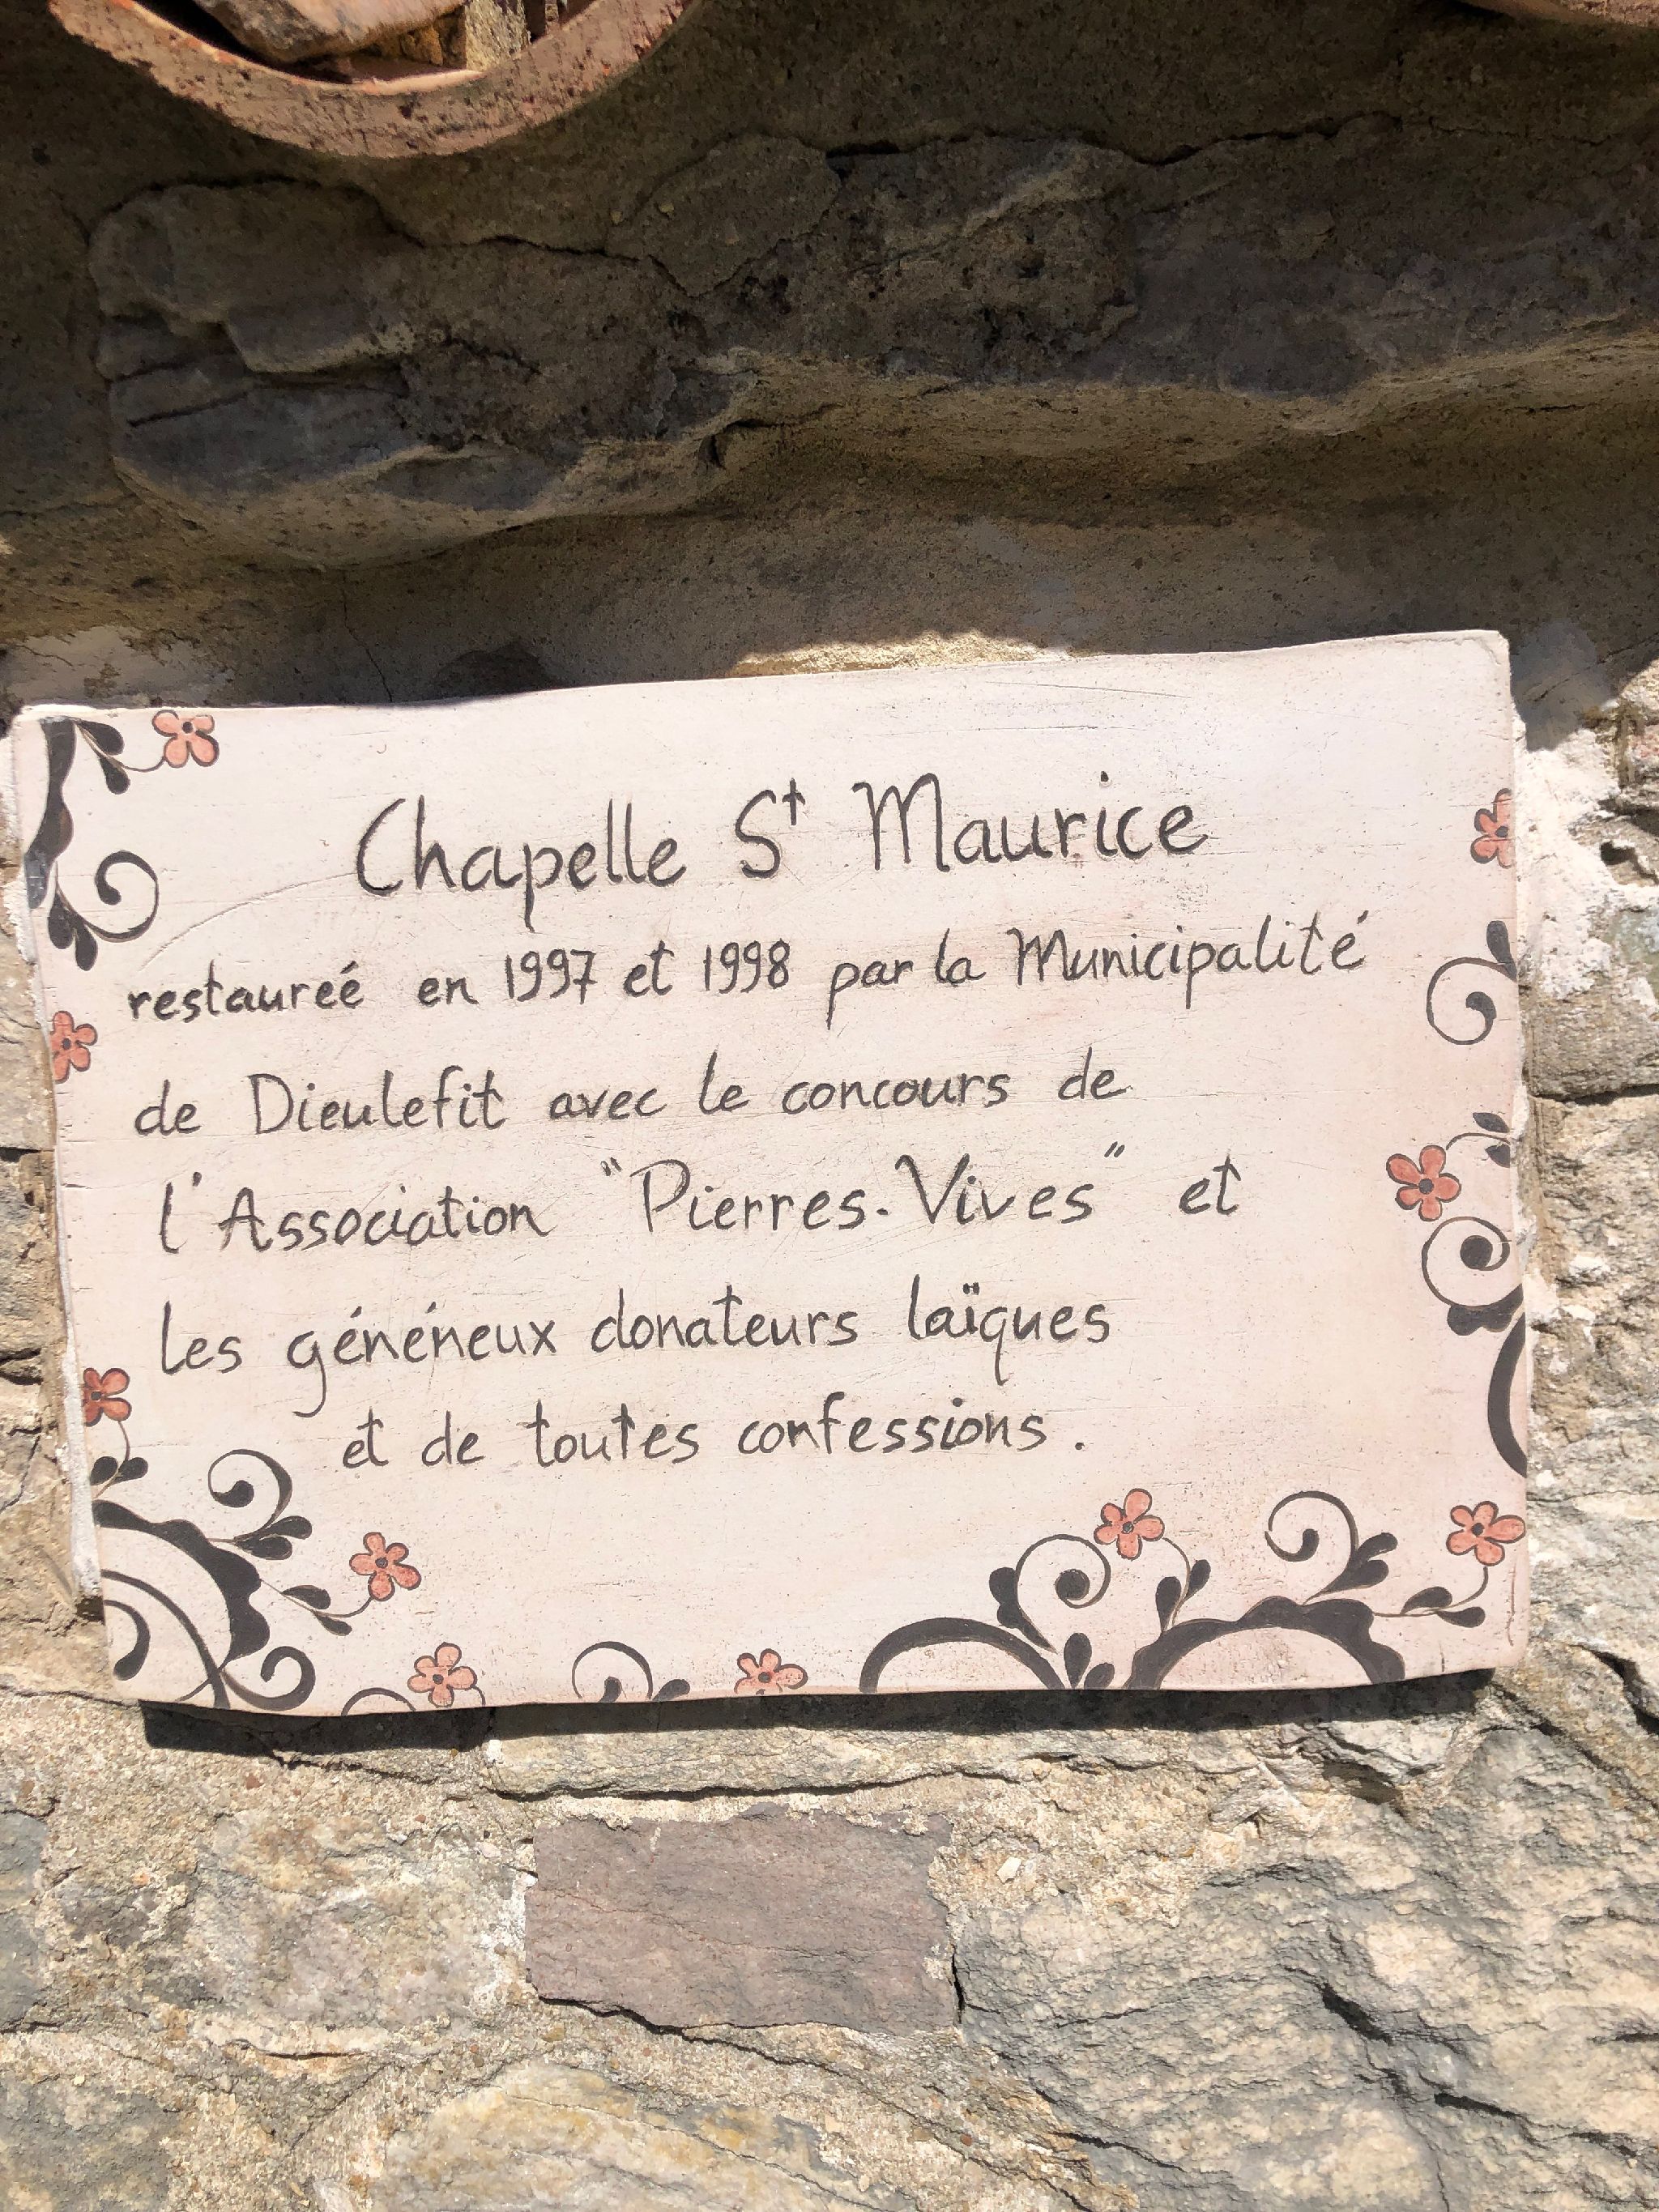 Chapelle St Maurice
restaureé en 1997 et 1998 par la Municipalité
de Dieulefit avec le concours de
l'Association "Pierres-Vives" et
les généneux donateurs laïques
et de toutes confessions.